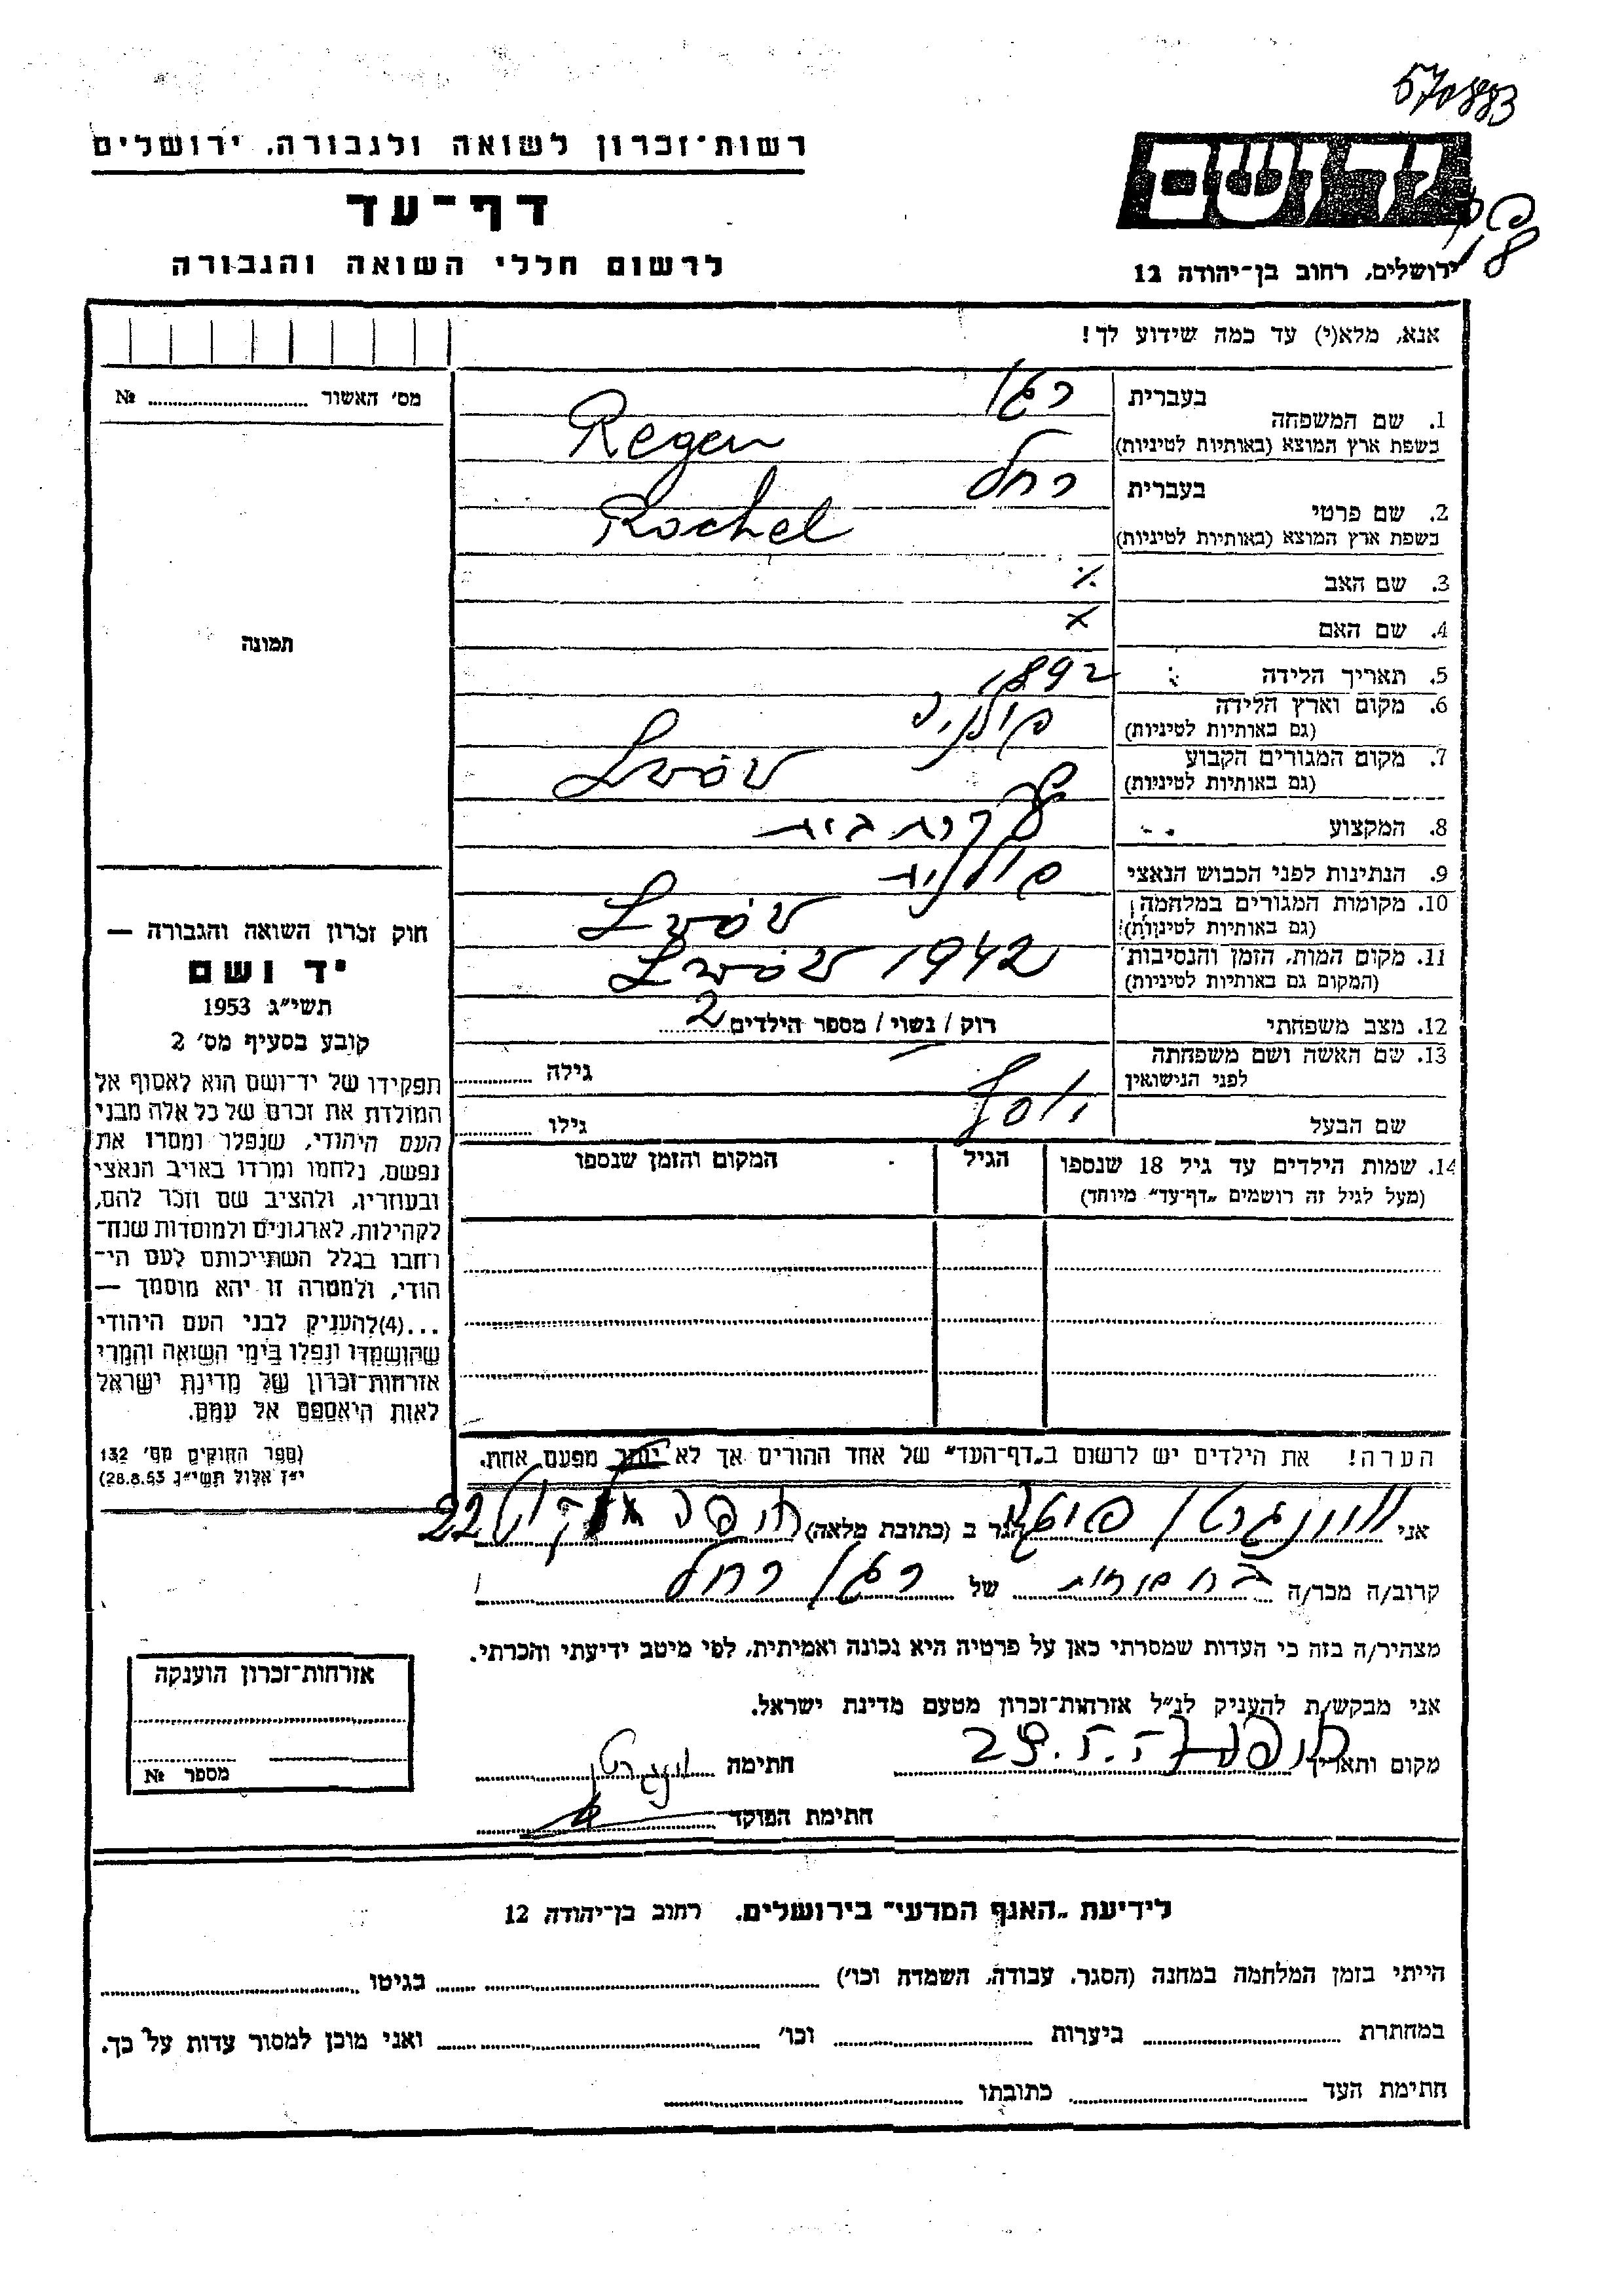 570883
רשות־זכרון לשואה ולגבורה, ירושלים
דף־עד
לרשום חללי השואה והגבורה
יד ושם
ירושלים, רחוב בן־יהודה 12
אנא, מלא(י) עד כמה שידוע לך!
מס׳ האשור № 
תמונה
1. שם המשפחה בעברית רגן
בשפת ארץ המוצא (באותיות לטיניות) Regen
2. שם פרטי בעברית רחל
בשפת ארץ המוצא (באותיות לטיניות) Rochel
3. שם האב
4. שם האם
5. תאריך הלידה 1892
6. מקום וארץ הלידה פולניה
(גם באותיות לטיניות)
7. מקום המגורים הקבוע Lwów
(גם באותיות לטיניות)
8. המקצוע עקרת בית
9. הנתינות לפני הכבוש הנאצי פולנית
10. מקומות המגורים במלחמה Lwów
(גם באותיות לטיניות)
11. מקום המות, הזמן והנסיבות Lwów 1942
(המקום גם באותיות לטיניות)
12. מצב משפחתי רוק / נשוי / מספר הילדים 2
13. שם האשה ושם משפחתה
לפני הנישואין גילה
שם הבעל יוסף גילו
14. שמות הילדים עד גיל 18 שנספו הגיל המקום והזמן שנספו
(מעל לגיל זה רושמים „דף־עד” מיוחד)
חוק זכרון השואה והגבורה —
יד ושם
תשי״ג 1953
קובע בסעיף מס׳ 2
תפקידו של יד־ושם הוא לאסוף אל
המולדת את זכרם של כל אלה מבני
העם היהודי, שנפלו ומסרו את
נפשם, נלחמו ומרדו באויב הנאצי
ובעוזריו, ולהציב שם וזכר להם,
לקהילות, לארגונים ולמוסדות שנח־
רחבו בגלל השתייכותם לעם הי־
הודי, ולמטרה זו יהא מוסמך —
...(4)להעניק לבני העם היהודי
שהושמדו ונפלו בימי השואה והמרי
אזרחות־זכרון של מדינת ישראל
לאות היאספם אל עמם.
(ספר החוקים מס׳ 132
י״ז אלול תשי״ג 28.8.53)
הערה! את הילדים יש לרשום ב„דף־העד” של אחד ההורים אך לא יותר מפעם אחת.
אני הגר ב (כתובת מלאה) חיפה 22
קרוב/ה מכר/ה של רגן רחל
מצהיר/ה בזה כי העדות שמסרתי כאן על פרטיה היא נכונה ואמיתית, לפי מיטב ידיעתי והכרתי.
אני מבקש/ת להעניק לנ״ל אזרחות־זכרון מטעם מדינת ישראל.
מקום ותאריך חיפה חתימה
חתימת הפוקד
אזרחות־זכרון הוענקה
מספר №
לידיעת „האגף המדעי” בירושלים, רחוב בן־יהודה 12
הייתי בזמן המלחמה במחנה (הסגר, עבודה, השמדה וכו׳) בגיטו
במחתרת ביערות וכו׳ ואני מוכן למסור עדות על כך.
חתימת העד כתובתו